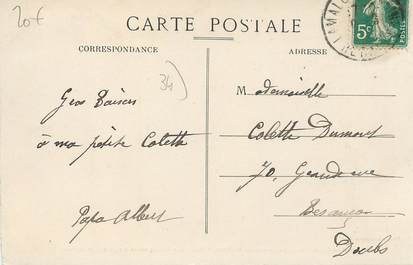 20€
CARTE POSTALE
CORRESPONDANCE
ADRESSE
LAMALOU
5c
34
Gros Baisers
à ma petite Colette
Papa Albert
Mademoiselle
Colette Dumont
70, Grande rue
Besançon
Doubs